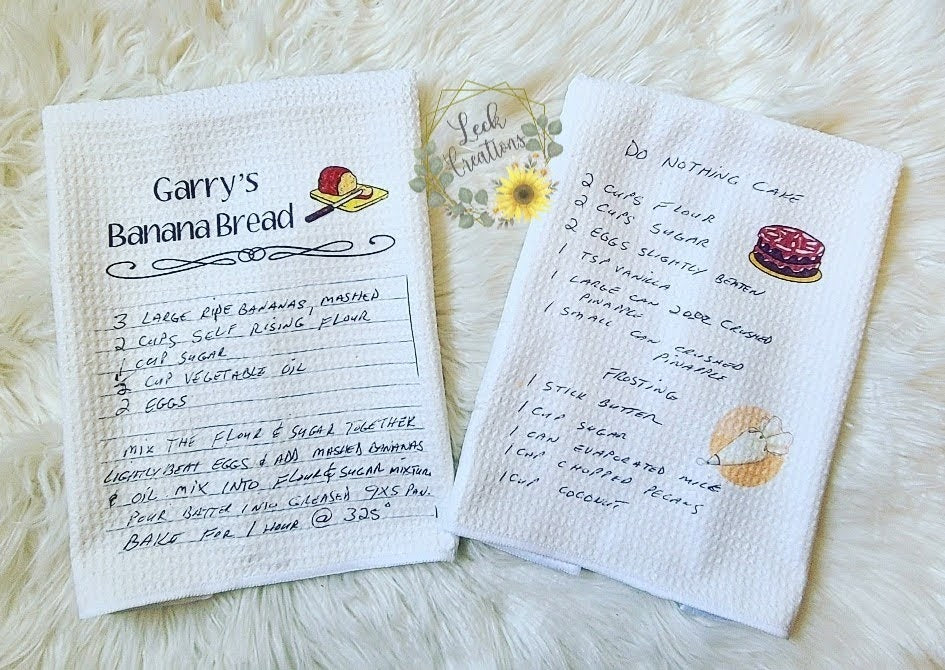 Garry's
Banana Bread
3 LARGE RIPE BANANAS, MASHED
2 CUPS SELF RISING FLOUR
1 CUP SUGAR
1/2 CUP VEGETABLE OIL
2 EGGS
MIX THE FLOUR & SUGAR TOGETHER
LIGHTLY BEAT EGGS & ADD MASHED BANANAS
& OIL MIX INTO FLOUR & SUGAR MIXTURE
POUR BATTER INTO GREASED 9X5 PAN.
BAKE FOR 1 HOUR @ 325°
Leek
Creations
DO NOTHING CAKE
2 CUPS FLOUR
2 CUPS SUGAR
2 EGGS SLIGHTLY BEATEN
1 TSP VANILLA
1 LARGE CAN 20OZ CRUSHED
PINAPPLE
1 SMALL CAN CRUSHED
PINAPPLE
FROSTING
1 STICK BUTTER
1 CUP SUGAR
1 CAN EVAPORATED MILK
1 CUP CHOPPED PECANS
1 CUP COCONUT